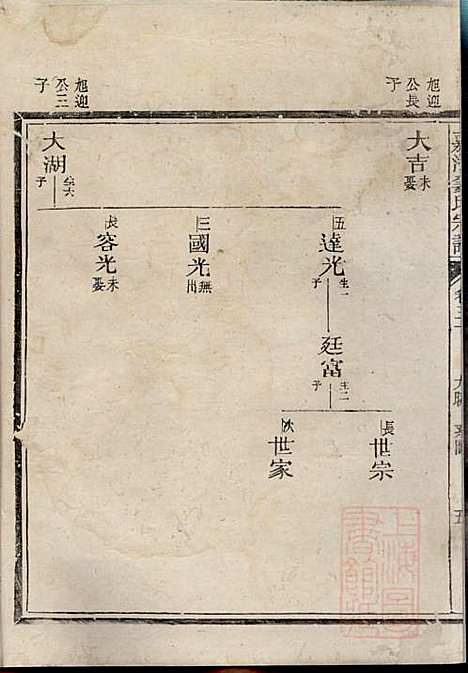 旭迎公長子
大吉
未娶
旭迎公三子
大湖
生六子
五
達光
生一子
廷富
生二子
長
世宗
次
世家
三
國光
無出
長
容光
未娶
氏宗譜